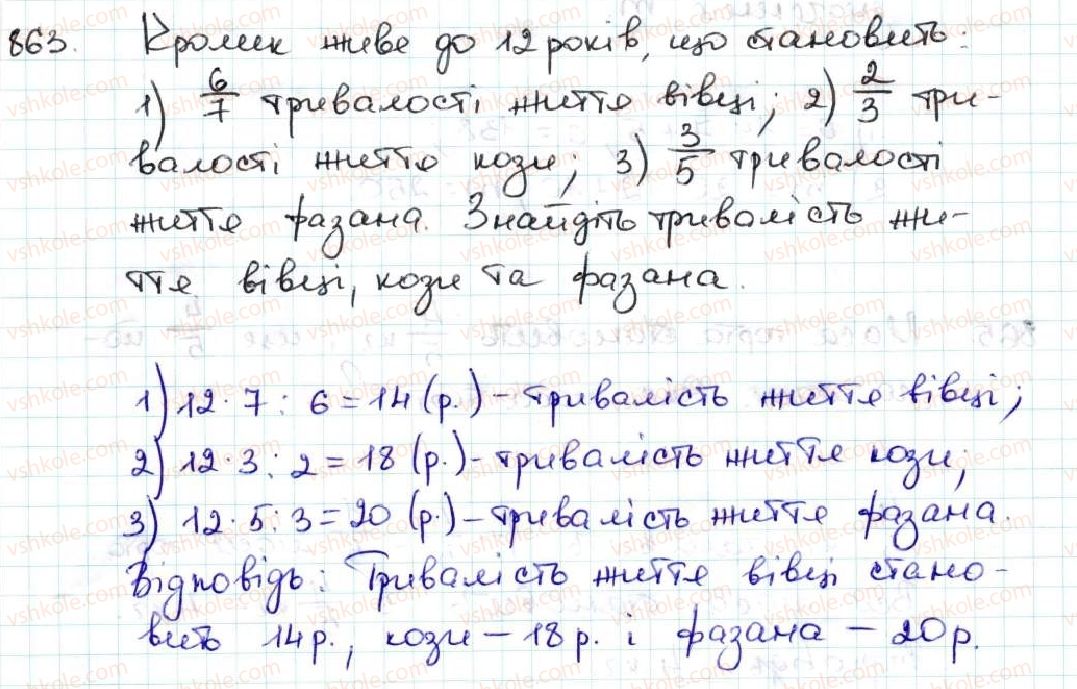 863. Кролик живе до 12 років, що становить:
1) 6/7 тривалості життя вівці; 2) 2/3 три-
валості життя кози; 3) 3/5 тривалості
життя фазана. Знайдіть тривалість жи-
ття вівці, кози та фазана.
1) 12 · 7 : 6 = 14 (р.) – тривалість життя вівці;
2) 12 · 3 : 2 = 18 (р.) – тривалість життя кози;
3) 12 · 5 : 3 = 20 (р.) – тривалість життя фазана.
Відповідь: Тривалість життя вівці стано-
вить 14 р., кози – 18 р. і фазана – 20 р.
vshkole.com